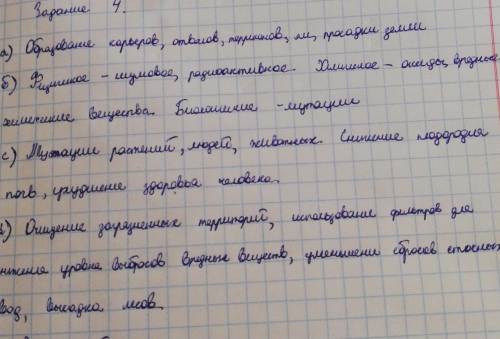 Задание 4.
а) Образование карьеров, отвалов, терриконов, ям, просадки земли
б) Физическое - шумовое, радиоактивное. Химическое - оксиды, вредные
химические вещества. Биологические - мутации
с) Мутации растений, людей, животных. Снижение плодородия
почв, ухудшение здоровья человека.
д) Очищение загрязненных территорий, использование фильтров для
нижения уровня выбросов вредных веществ, уменьшение сбросов сточных
вод, высадка лесов.